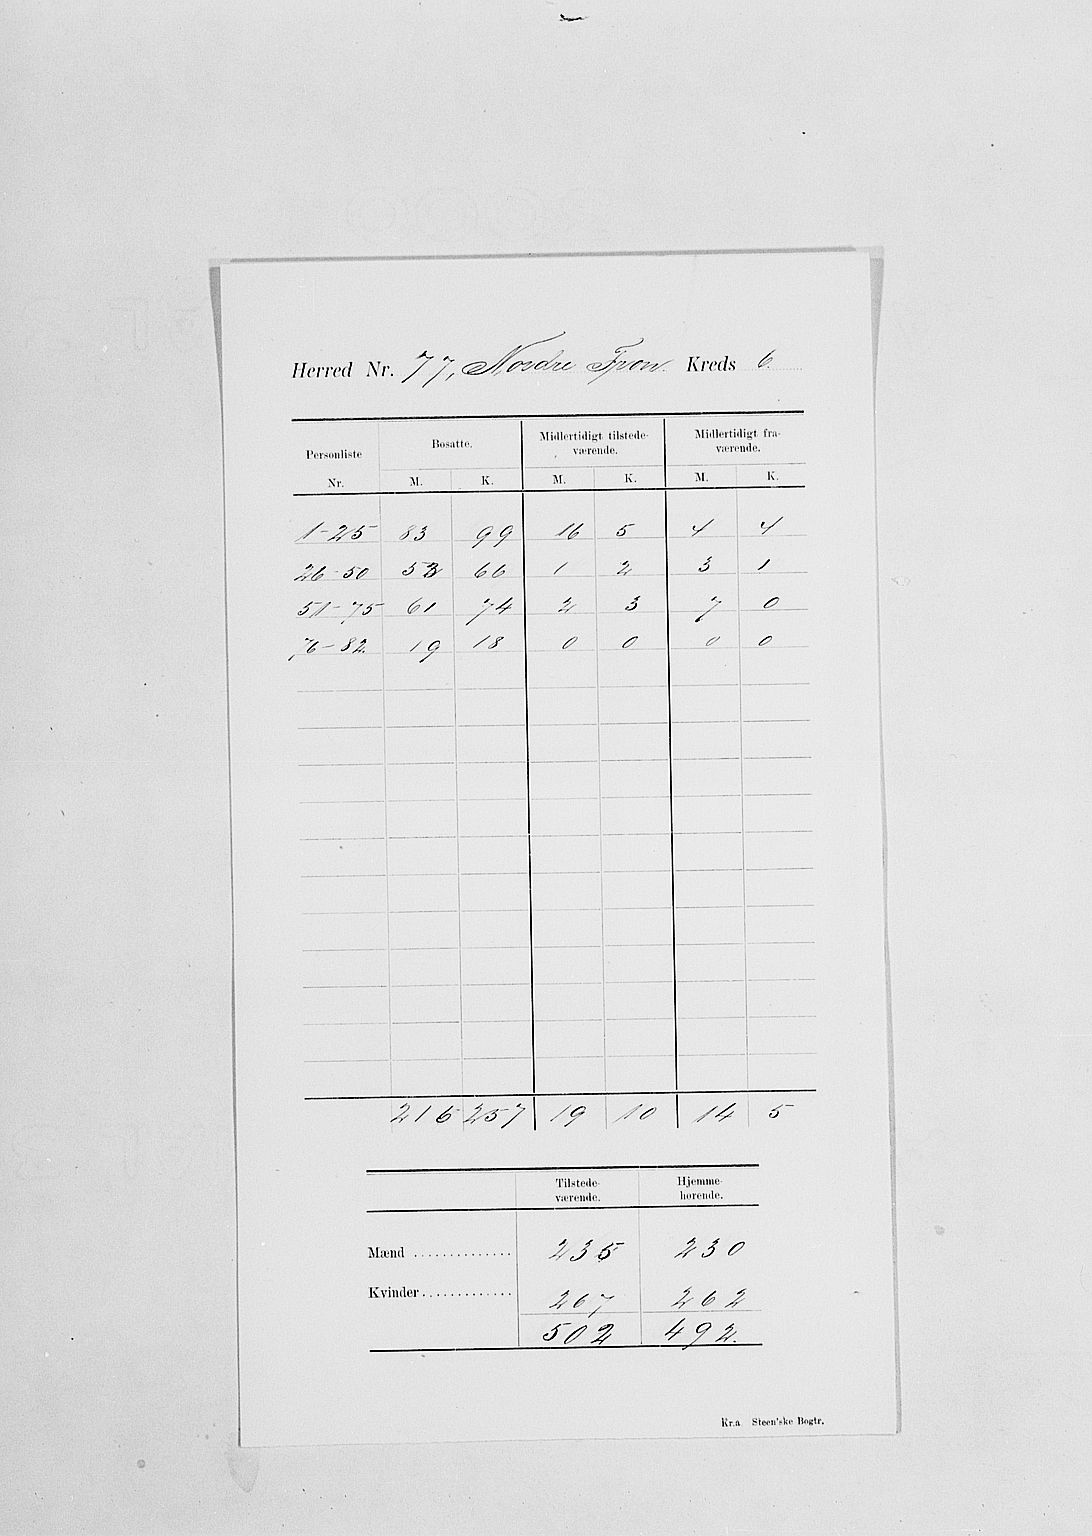 Herred Nr. 77, Nordre Fron. Kreds 6
Personliste Nr. Bosatte. M. K. Midlertidigt tilstede-værende. M. K. Midlertidigt fra-værende. M. K.
1-25 83 99 16 5 4 4
26-50 53 66 1 2 3 1
51-75 61 74 2 3 7 0
76-82. 19 18 0 0 0 0
216 257 19 10 14 5
Tilstede-værende. Hjemme-hørende.
Mænd .............. 235 230
Kvinder............. 267 262
502 492.
Kr.a Steen'ske Bogtr.